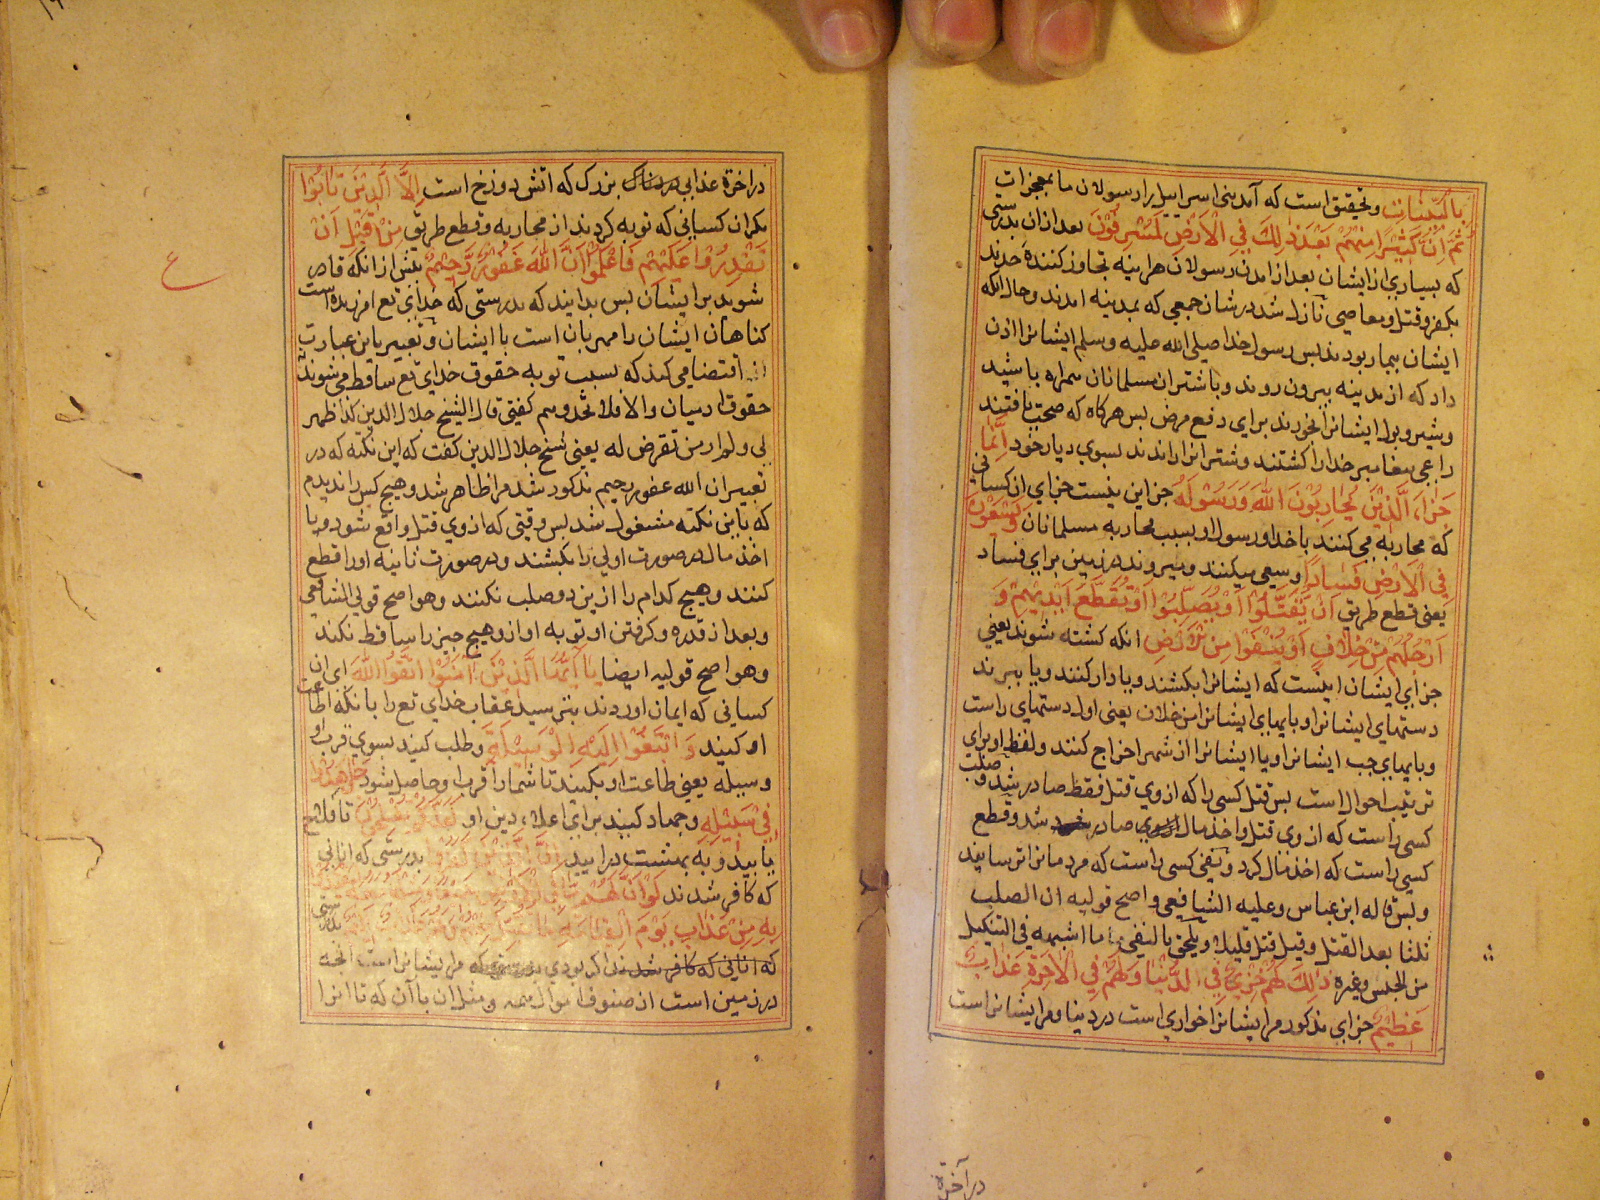 بِالْبَيِّنَاتِ وبتحقیق است که آمدند بنی اسراییل را رسولان ما بمعجزات
ثُمَّ اِنَّ كَثِيْرًا مِنْهُمْ بَعْدَ ذٰلِكَ فِي الْاَرْضِ لَمُسْرِفُوْنَ بعد ازان بدرستی
که بسیاری از ایشان بعد از امدن رسولان هراینه تجاوز کننده حدند
بکفر و قتل و معاصی نازل شد درشان جمعی که بمدینه امدند و حال انکه
ایشان بیمار بودند بس رسول خدا صلی الله علیه وسلم ایشانرا اذن
داد که از مدینه بیرون روند و با شتران مسلمانان همراه باشید
وشیر و بول ایشانرا بخورند برای دفع مرض بس هرکاه که صحت یافتند
راعی بیغامبر خدا را کشتند و شترانرا راندند بسوی دیار خود اِنَّمَا
جَزٰٓءُ الَّذِيْنَ يُحَارِبُوْنَ اللّٰهَ وَرَسُوْلَهُ جز این نیست جزای ان کسانی
که محاربه می کنند با خدا و رسول او بسبب محاربه مسلمانان وَيَسْعَوْنَ
فِي الْاَرْضِ فَسَادًا و سعی میکنند و میروند در زمین برای فساد
یعنی قطع طریق اَنْ يُّقَتَّلُوْا اَوْ يُصَلَّبُوْا اَوْ تُقَطَّعَ اَيْدِيْهِمْ وَ
اَرْجُلُهُمْ مِّنْ خِلَافٍ اَوْ يُنْفَوْا مِنَ الْاَرْضِ انکه کشته شوند یعنی
جزای ایشان اینست که ایشانرا بکشند و یا دار کنند و یا ببرند
دستهای ایشانرا و پایهای ایشانرا من خلاف یعنی اول دستهای راست
وپایهای چب ایشانرا و یا ایشانرا از شهر اخراج کنند و لفظ او برای
ترتیب احوال است بس قتل کسی را که از وی قتل فقط صادر شد و صلب
کسی راست که از وی قتل و اخذ مال صادر شد و قطع
کسی راست که اخذ مال کرد و نفی کسی راست که مردمانرا ترسانید
وبس قاله ابن عباس وعلیه الشافعی واصح قولیه ان الصلب
ثلثا بعد القتل وقیل قتل قلیلا ویلحق بالنفی ما اشبهه فی التنکیل
من الحبس وغیره ذٰلِكَ لَهُمْ خِزْيٌ فِي الدُّنْيَا وَلَهُمْ فِي الْاٰخِرَةِ عَذَابٌ
عَظِيْمٌ جزای مذکور مر ایشانرا خواری است در دنیا و مر ایشانراست
در آخرة
در اخرة عذابی دردناک بزرک که اتش دوزخ است اِلَّا الَّذِيْنَ تَابُوْا
مکر ان کسانی که توبه کردند از محاربه و قطع طریق مِنْ قَبْلِ اَنْ
تَقْدِرُوْا عَلَيْهِمْ فَاعْلَمُوْا اَنَّ اللّٰهَ غَفُوْرٌ رَّحِيْمٌ بیش از انکه قادر
شوید بر ایشان بس بدانید که بدرستی که خدای تع امرزیده است
کناهان ایشان را مهربان است با ایشان و تعبیر باین عبارت
اقتضا می کند که بسبب توبه حقوق خدای تع ساقط می شوند
حقوق ادمیان والا فلا تحدوهم کفتی قال الشیخ جلال الدین کذا ظهر
لی ولم ار من تعرض له یعنی شیخ جلال الدین کفت که این نکته که در
تعبیر ان الله غفور رحیم مذکور شد مرا ظاهر شد و هیچ کس را ندیدم
که باین نکته مشغول شد بس وقتی که از وی قتل واقع شود و یا
اخذ مال در صورت اولی را بکشند و در صورت ثانیه اورا قطع
کنند و هیچ کدام را ازین دو صلب نکنند وهو اصح قولی الشافعی
وبعد از قدره و کرفتن او توبه او ازو هیچ چیز را ساقط نکند
وهو اصح قولیه ایضا يَا اَيُّهَا الَّذِيْنَ اٰمَنُوْا اتَّقُوا اللّٰهَ ای ان
کسانی که ایمان اوردند بترسید از عقاب خدای تع را بانکه اطاعت
او کنید وَابْتَغُوْا اِلَيْهِ الْوَسِيْلَةَ وطلب کنید بسوی قرب او
وسیله یعنی طاعت او بکنید تا شما را قرب او حاصل شود وَجَاهِدُوْا
فِيْ سَبِيْلِهِ وجهاد کنید برای اعلاء دین او لَعَلَّكُمْ تُفْلِحُوْنَ تا فلاح
یابید و به بهشت درایید اِنَّ الَّذِيْنَ كَفَرُوْا بدرستی که انانی
که کافر شدند لَوْ اَنَّ لَهُمْ مَّا فِي الْاَرْضِ
بِهِ مِنْ عَذَابِ يَوْمِ الْقِيٰمَةِ مَا تُقُبِّلَ مِنْهُمْ
که انانی که کافر شدند اکر بودی که مر ایشانرا است انچه
در زمین است از صنوف اموال همه و مثل ان با آن که تا انرا
ع